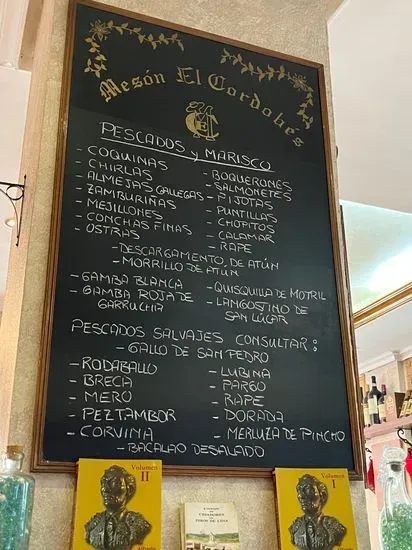 Mesón El Cordobés
PESCADOS y MARISCO
- COQUINAS
- CHIRLAS
- ALMEJAS GALLEGAS
- ZAMBURIÑAS
- MEJILLONES
- CONCHAS FINAS
- OSTRAS
- BOQUERONES
- SALMONETES
- PIJOTAS
- PUNTILLAS
- CHOPITOS
- CALAMAR
- RAPE
- DESCARGAMENTO, DE ATÚN
- MORRILLO DE ATÚN
- GAMBA BLANCA
- GAMBA ROJA DE
GARRUCHA
- QUISQUILLA DE MOTRIL
- LANGOSTINO DE
SAN LÚCAR
PESCADOS SALVAJES CONSULTAR:
- GALLO DE SAN PEDRO
- RODABALLO
- BRECA
- MERO
- PEZ TAMBOR
- CORVINA
- LUBINA
- PARGO
- RAPE
- DORADA
- MERLUZA DE PINCHO
- BACALAO DESALADO
Volumen
II
Volumen
I
CRIADORES
DE
TOROS DE LIDIA